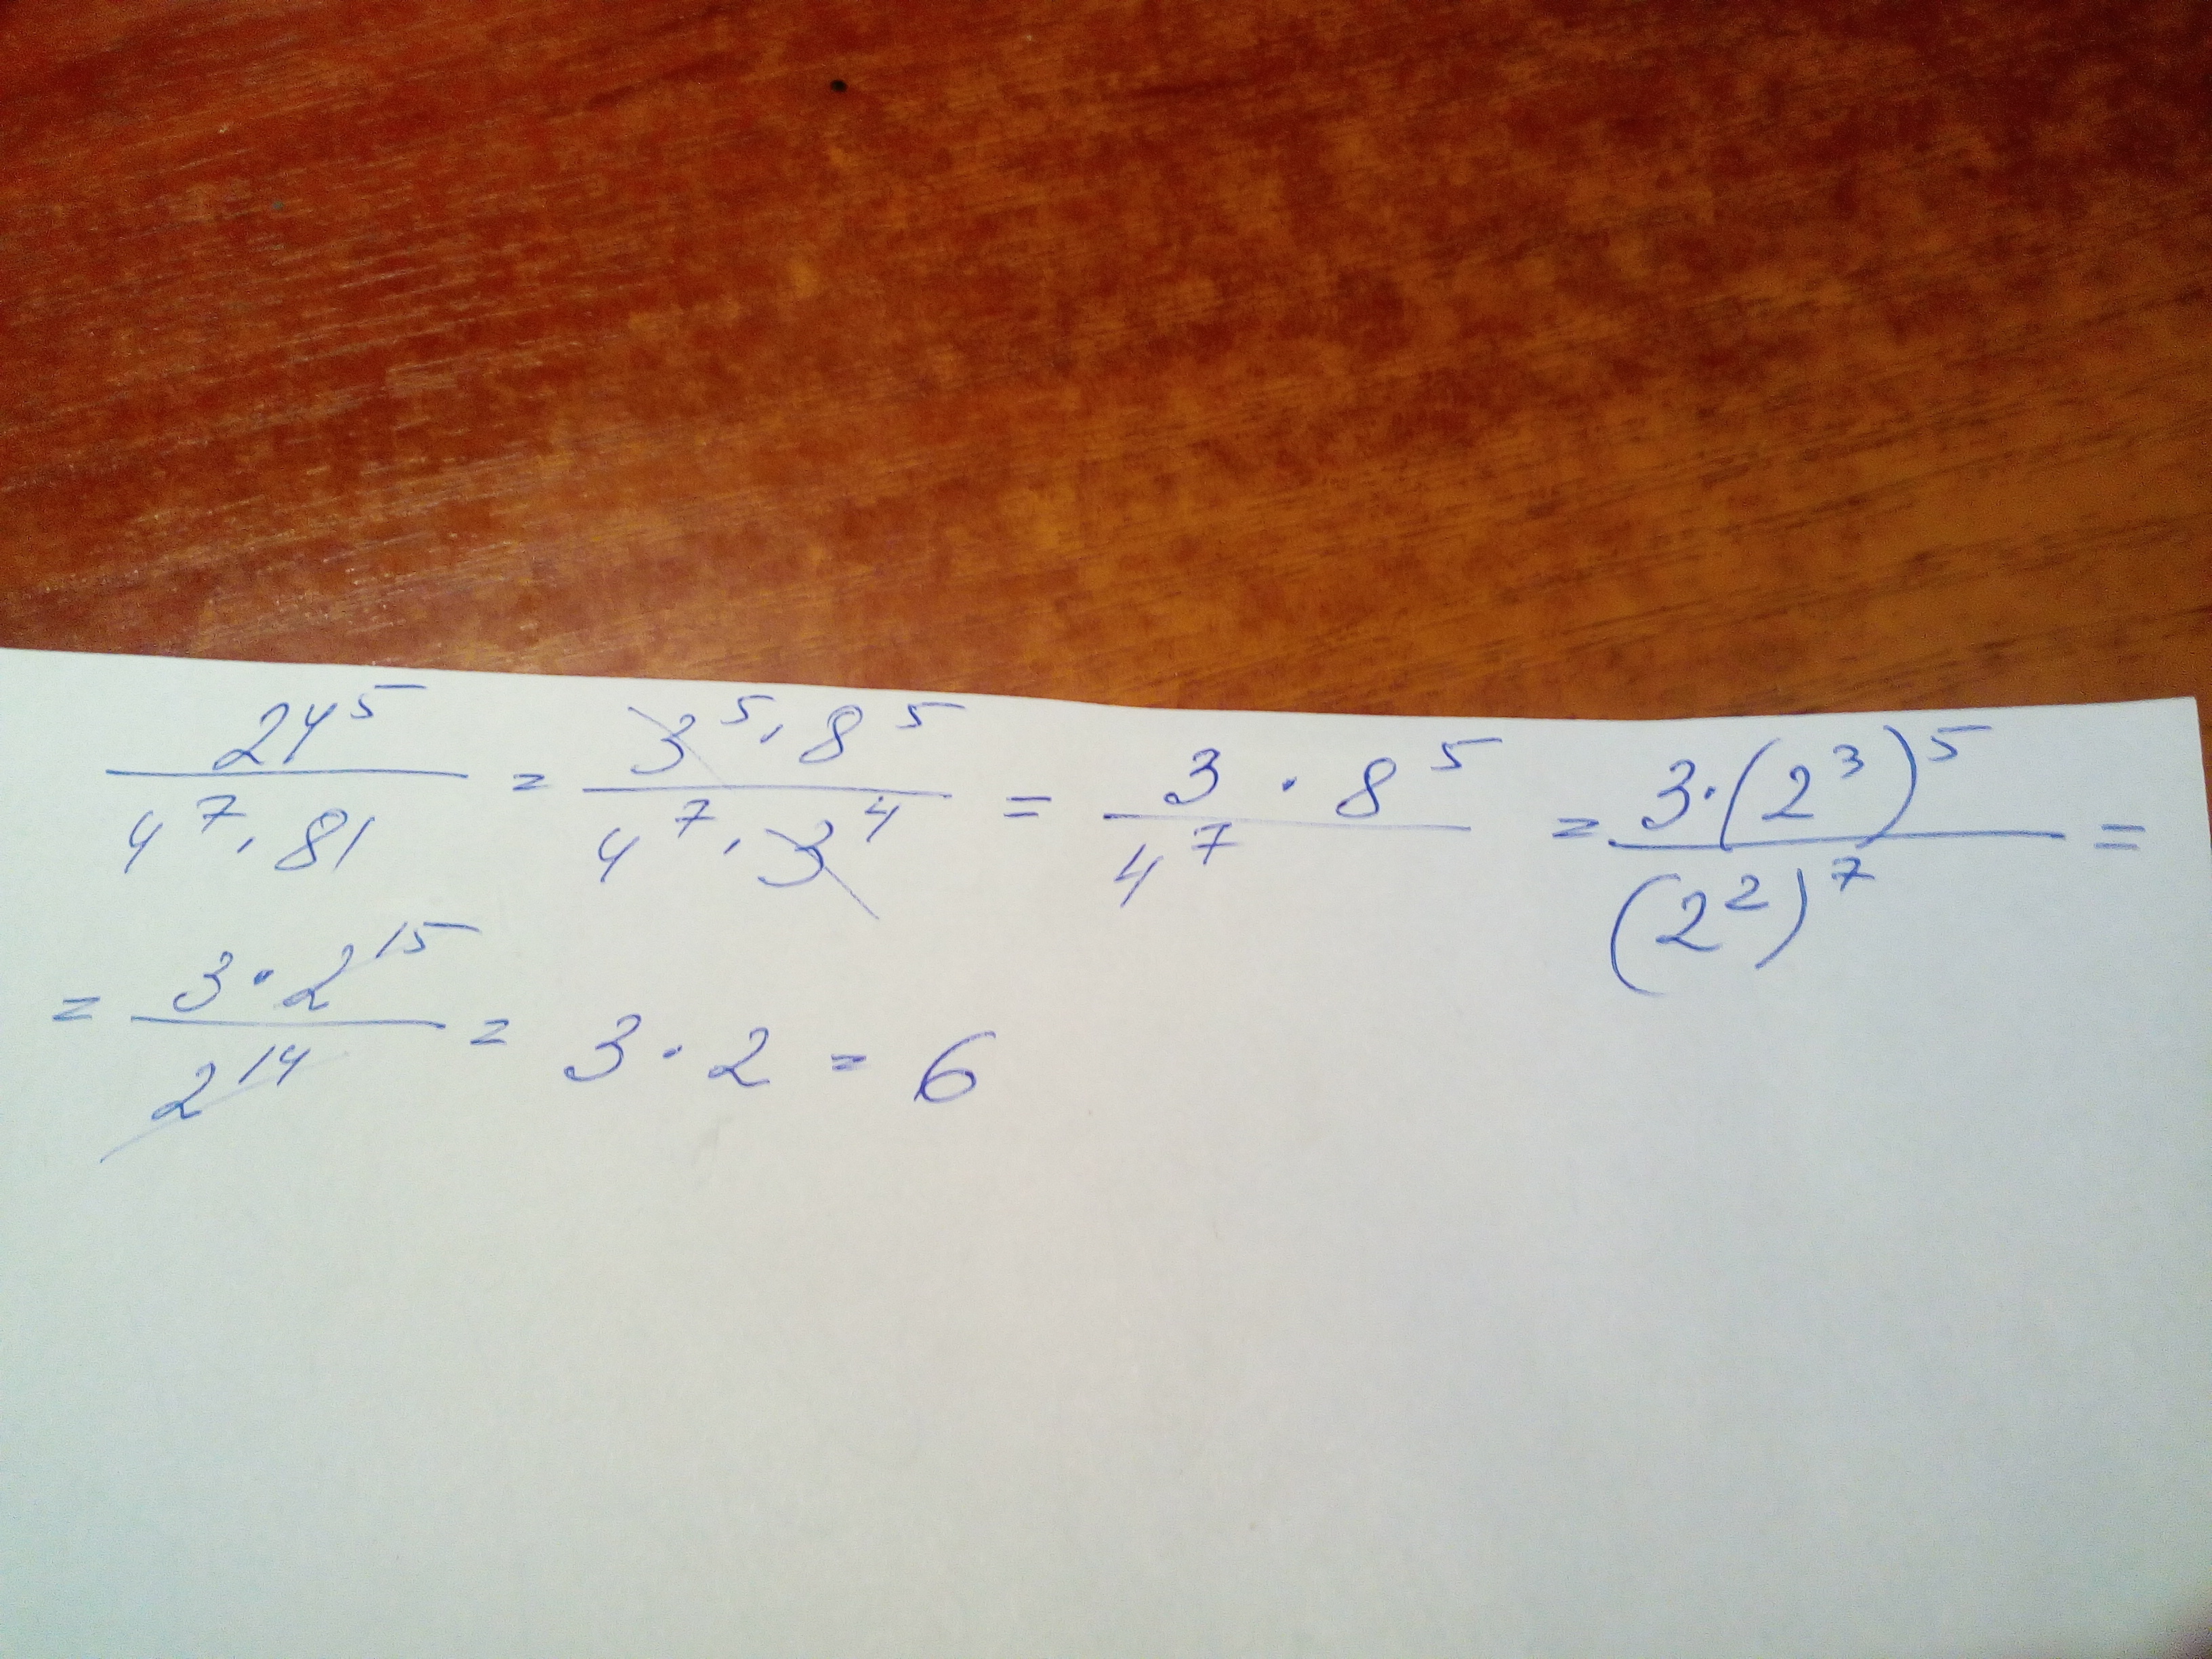 24^5 / (4^7 · 81) = (3^5 · 8^5) / (4^7 · 3^4) = (3 · 8^5) / 4^7 = (3 · (2^3)^5) / (2^2)^7 =
= (3 · 2^15) / 2^14 = 3 · 2 = 6